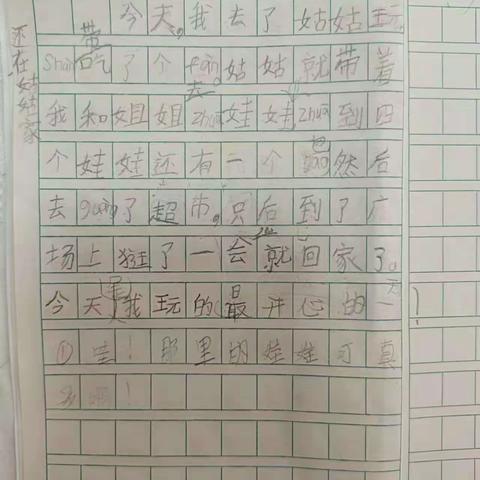 今天，我去了姑姑玩，
还在姑姑家
带
shàn吃了个fàn，姑姑就带着
去
我和姐姐zhuā娃娃，zhuā到四
包
个娃娃还有一个bāo然后
去guàng了超市，只后到了广
场上逛了一会就回家了。
今天(是)我玩的最开心的一天！
①哇！那里的娃娃可真
多啊！